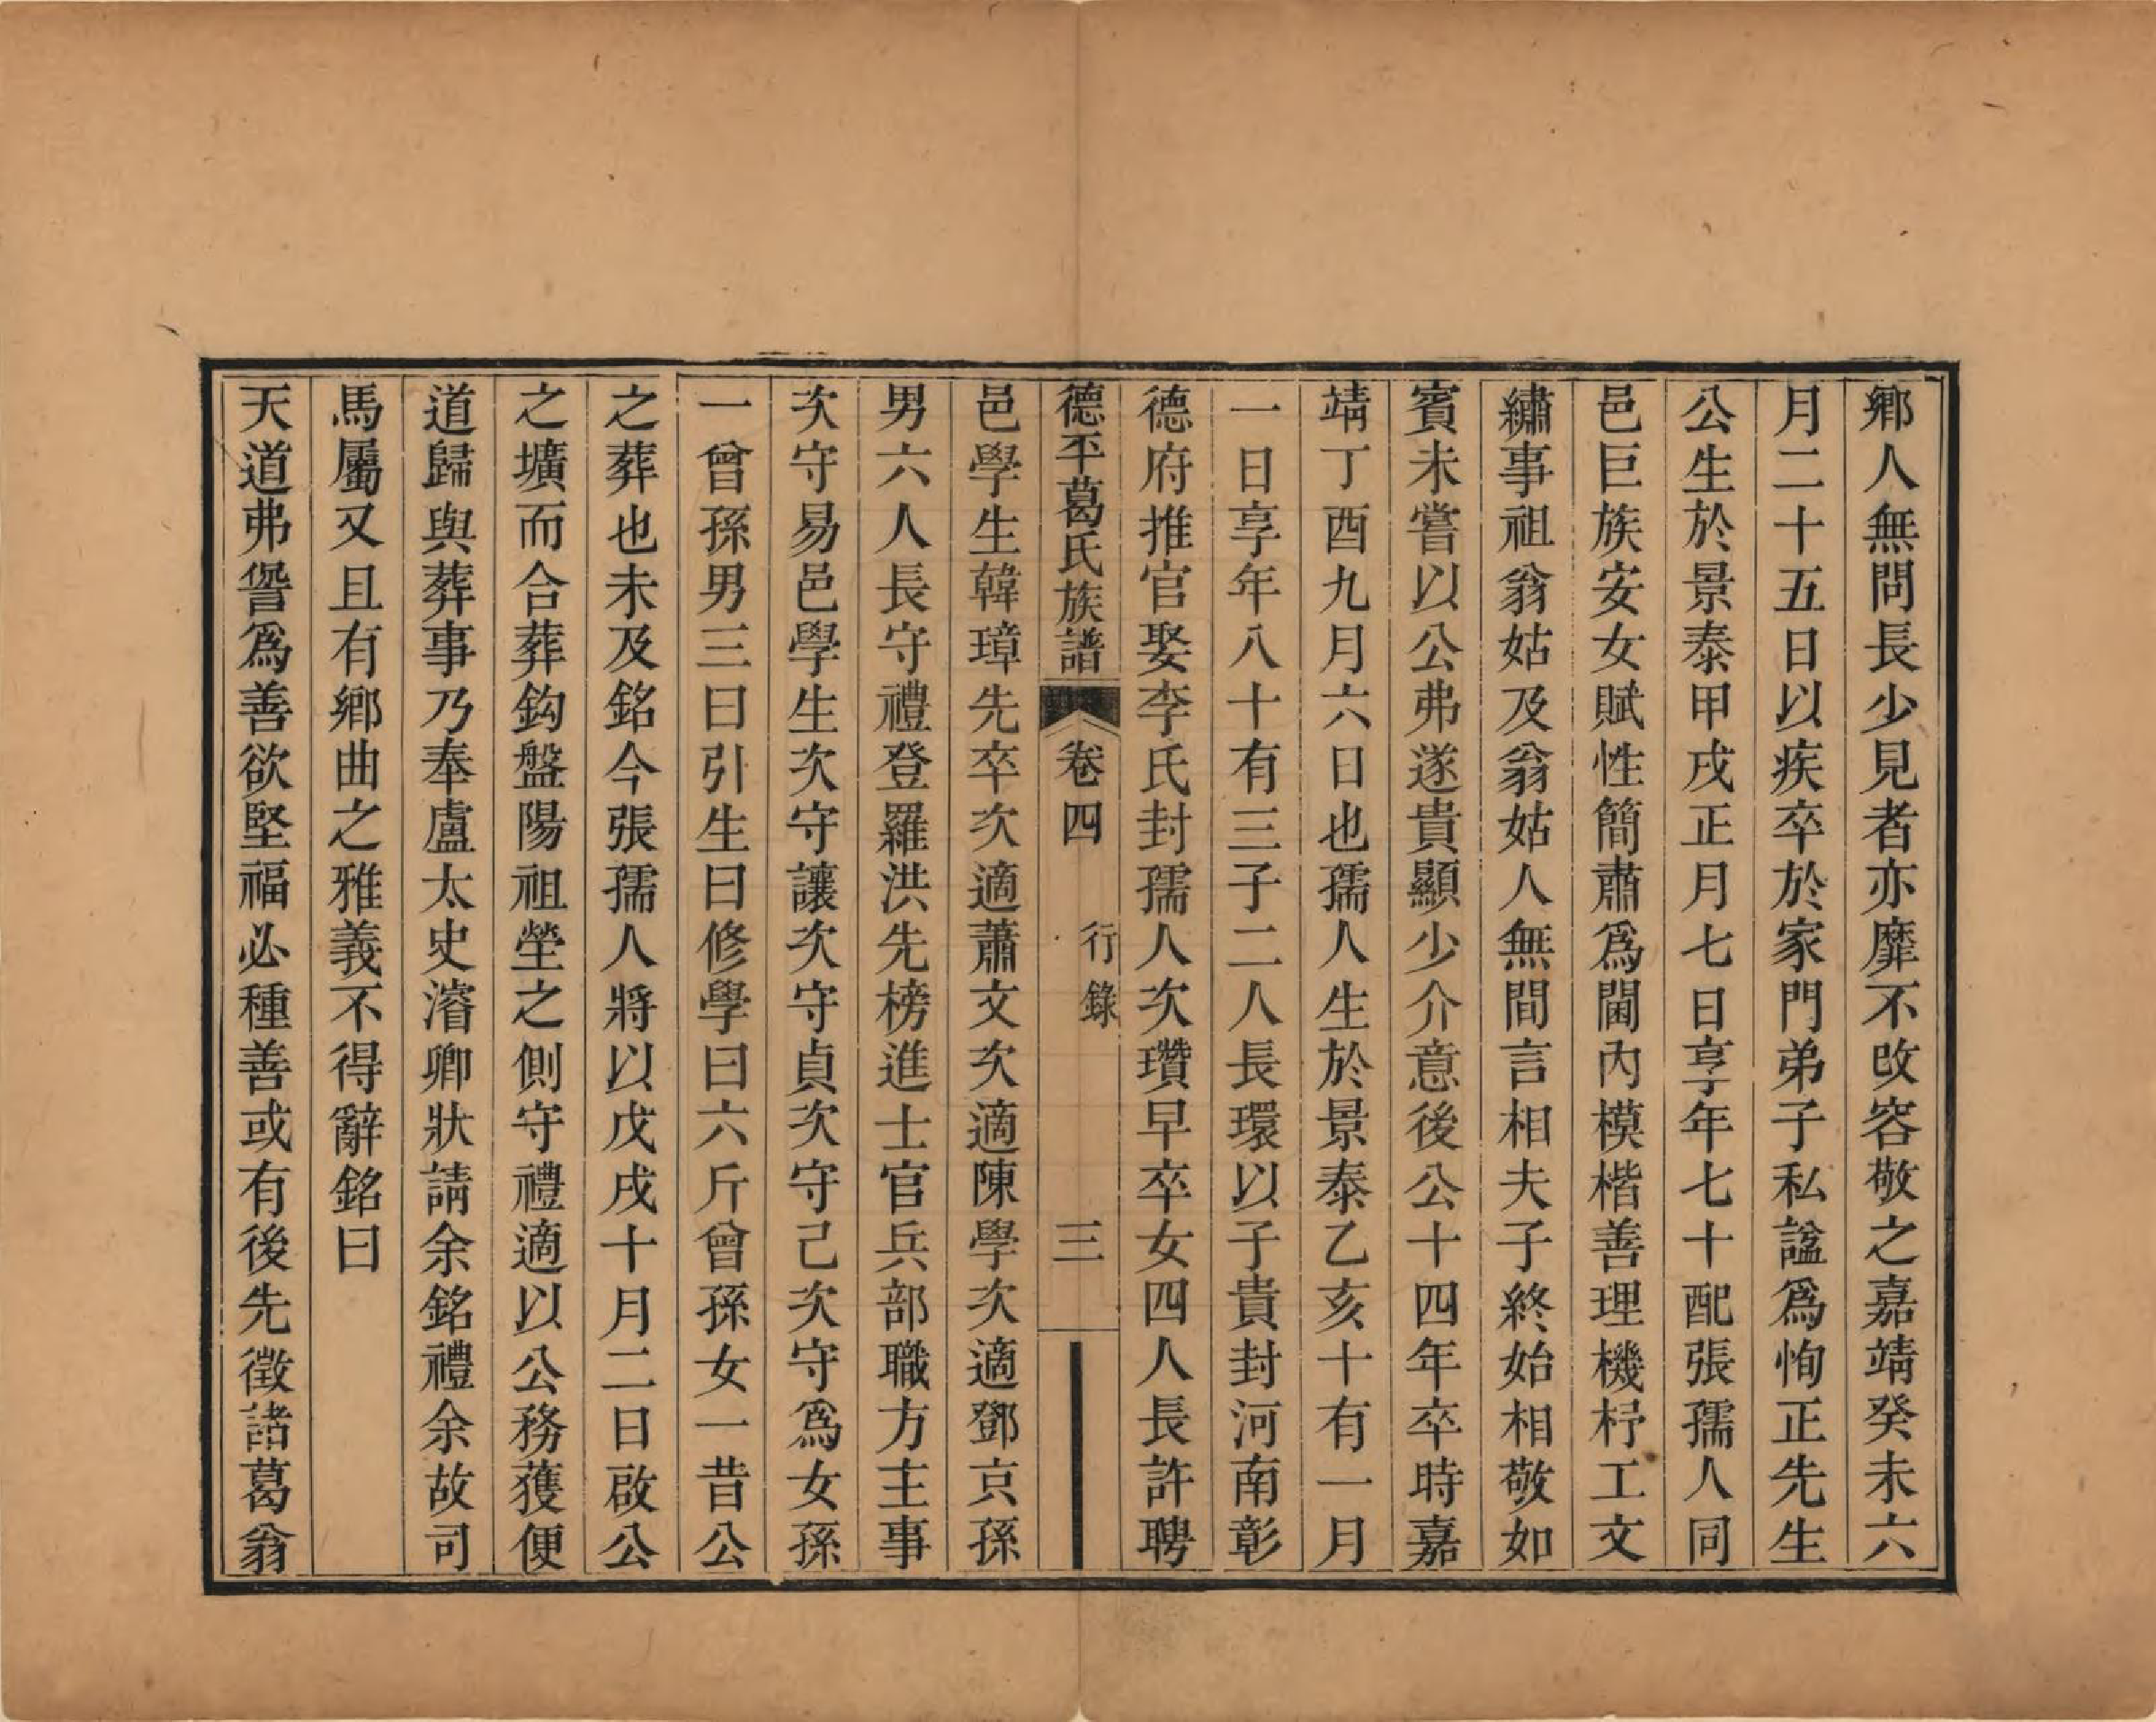 鄉人無問長少見者亦靡不改容敬之嘉靖癸未六
月二十五日以疾卒於家門弟子私諡爲恂正先生
公生於景泰甲戌正月七日享年七十配張孺人同
邑巨族安女賦性簡肅爲閫內模楷善理機杼工文
繡事祖翁姑及翁姑人無間言相夫子終始相敬如
賓未嘗以公弗遂貴顯少介意後公十四年卒時嘉
靖丁酉九月六日也孺人生於景泰乙亥十有一月
一日享年八十有三子二人長環以子貴封河南彰
德府推官娶李氏封孺人次瓚早卒女四人長許聘
德平葛氏族譜 卷四 行錄 三
邑學生韓璋先卒次適蕭文次適陳學次適鄧京孫
男六人長守禮登羅洪先榜進士官兵部職方主事
次守易邑學生次守讓次守貞次守己次守爲女孫
一曾孫男三曰引生曰修學曰六斤曾孫女一昔公
之葬也未及銘今張孺人將以戊戌十月二日啟公
之壙而合葬鈎盤陽祖塋之側守禮適以公務獲便
道歸與葬事乃奉盧太史濬卿狀請余銘禮余故司
馬屬又且有鄉曲之雅義不得辭銘曰
天道弗諐爲善欲堅福必種善或有後先徵諸葛翁